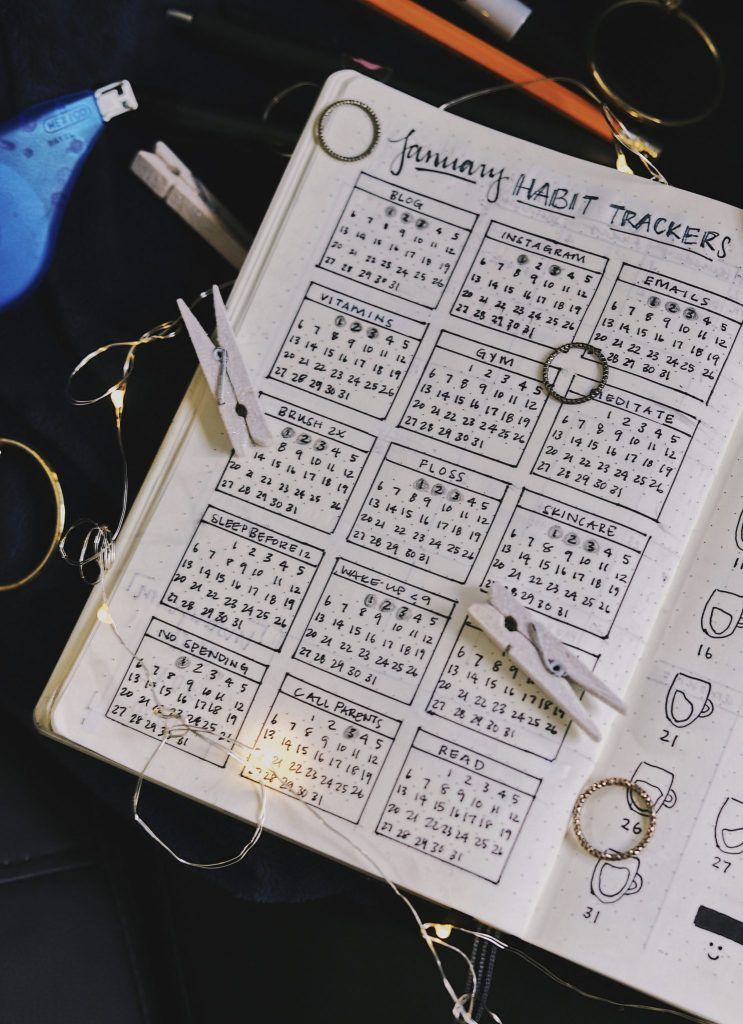 January HABIT TRACKERS
BLOG
1 2 3 4 5
6 7 8 9 10 11 12
13 14 15 16 17 18 19
20 21 22 23 24 25 26
27 28 29 30 31
INSTAGRAM
1 2 3 4 5
6 7 8 9 10 11 12
13 14 15 16 17 18 19
20 21 22 23 24 25 26
27 28 29 30 31
EMAILS
1 2 3 4 5
6 7 8 9 10 11 12
13 14 15 16 17 18 19
20 21 22 23 24 25 26
28 29 30 31
VITAMINS
1 2 3 4 5
6 7 8 9 10 11 12
13 14 15 16 17 18 19
20 21 22 23 24 25 26
27 28 29 30 31
GYM
1 2 3 4 5
6 7 8 9 10 11 12
13 14 15 16 17 18 19
20 21 22 23 24 25 26
27 28 29 30 31
MEDITATE
1 2 3 4 5
6 7 8 9 10 11 12
13 14 15 16 17 18 19
20 21 22 23 24 25 26
27 28 29 30 31
BRUSH 2X
1 2 3 4 5
8 9 10 11 12
14 15 16 17 18 19
20 21 22 23 24 25 26
27 28 29 30 31
FLOSS
1 2 3 4 5
6 7 8 9 10 11 12
13 14 15 16 17 18 19
20 21 22 23 24 25 26
27 28 29 30 31
SKINCARE
1 2 3 4 5
6 7 8 9 10 11 12
13 14 15 16 17 18 19
20 21 22 23 24 25 26
27 28 29 30 31
SLEEP BEFORE 12
1 2 3 4 5
6 7 8 9 10 11 12
13 14 15 16 17 18 19
20 21 22 23 24 25 26
27 28 29 30 31
WAKE-UP <9
1 2 3 4 5
6 7 8 9 10 11 12
13 14 15 16 17 18 19
20 21 22 23 24 25 26
27 28 29 30 31
6 7 8 9
13 14 15 16
20 21 22 23 24 25 26
27 28 29 30 31
NO SPENDING
1 2 3 4 5
6 7 8 9 10 11 12
13 14 15 16 17 18 19
20 21 22 23 24 25 26
27 28 29 30 31
CALL PARENTS
1 2 3 4 5
6 7 8 9 10 11 12
13 14 15 16 17 18 19
21 22 23 24 25 26
28 29 30 31
READ
1 2 3 4 5
6 7 8 9 10 11 12
13 14 15 16 17 18 19
20 21 22 23 24 25 26
27 28 29 30 31
16
21
26
27
31